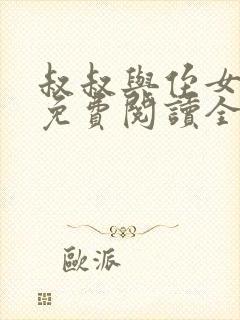 叔叔與侄女
免費閱讀全
歐派